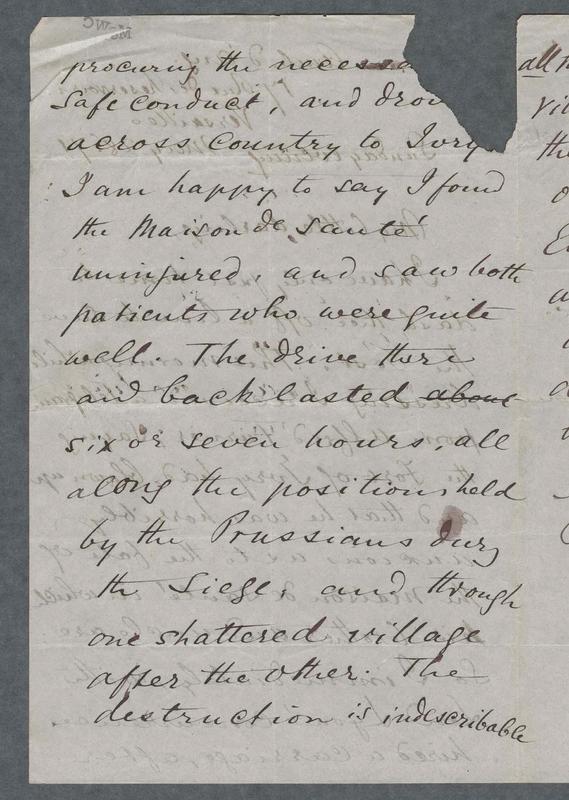 procuring the necessa
safe conduct, and drov
across country to Ivry
I am happy to say I found
the Maison de Santé
uninjured, and saw both
patients who were quite
well. The drive there
and back lasted about
six or seven hours, all
along the positions held
by the Prussians durg
the Siege, and through
one shattered village
after the other. The
destruction is indescribable
all